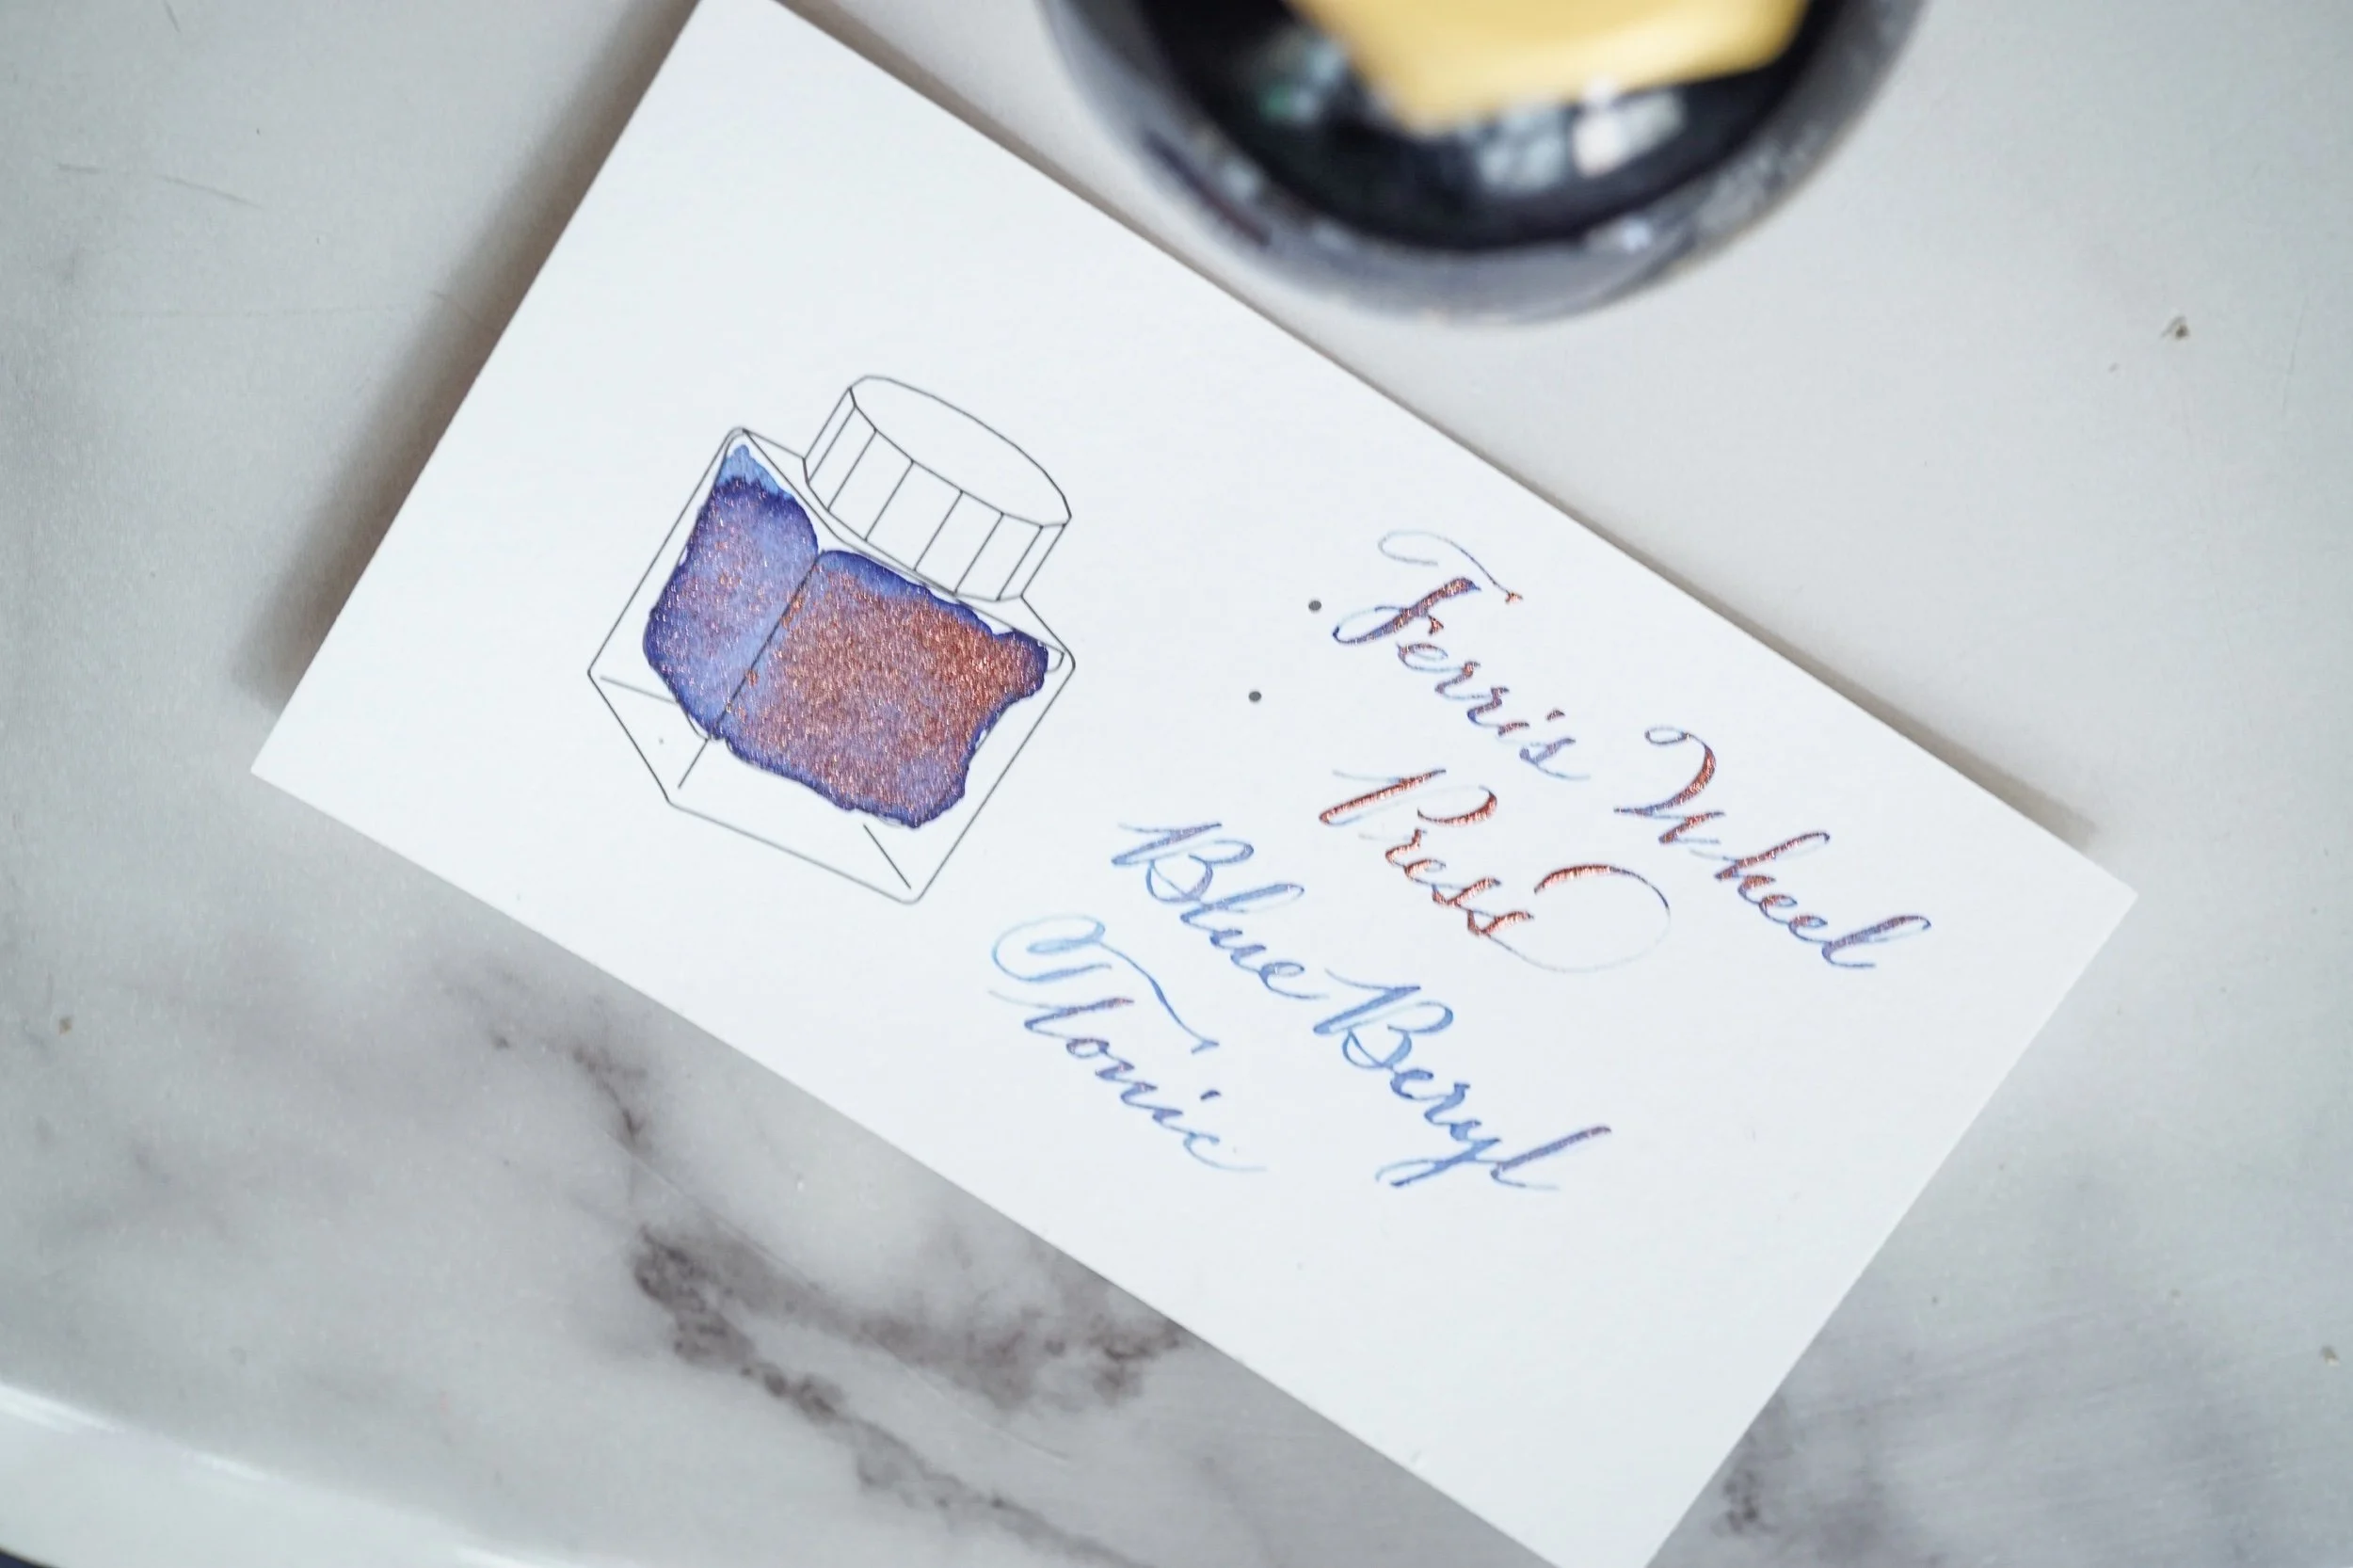 Ferris Wheel
Press
Blue Beryl
Tonic